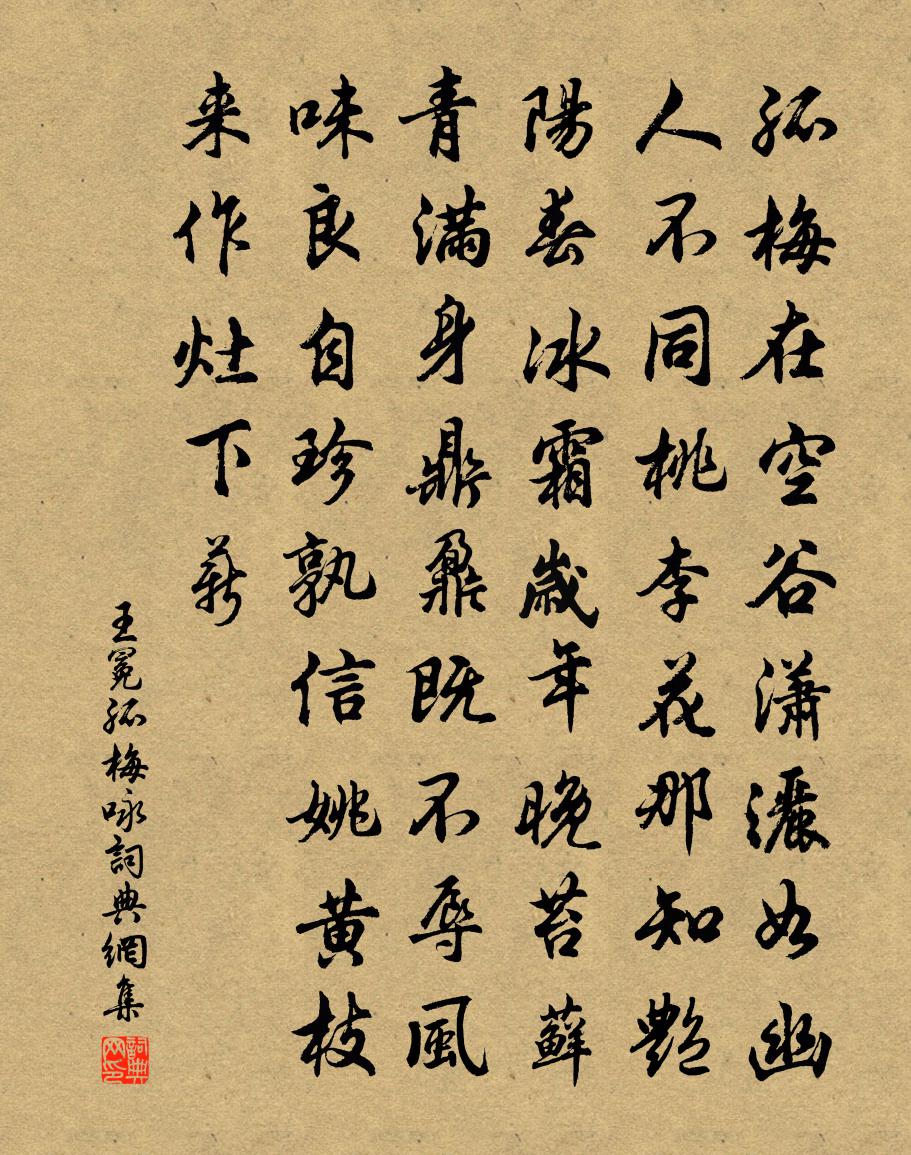 孤梅在空谷瀟灑如幽
人不同桃李花那知艷
陽春冰霜歲年晚苔蘚
青滿身鼎鼐既不辱風
味良自珍孰信姚黃枝
来作灶下薪
王冕孤梅咏詞典網集
詞典网印